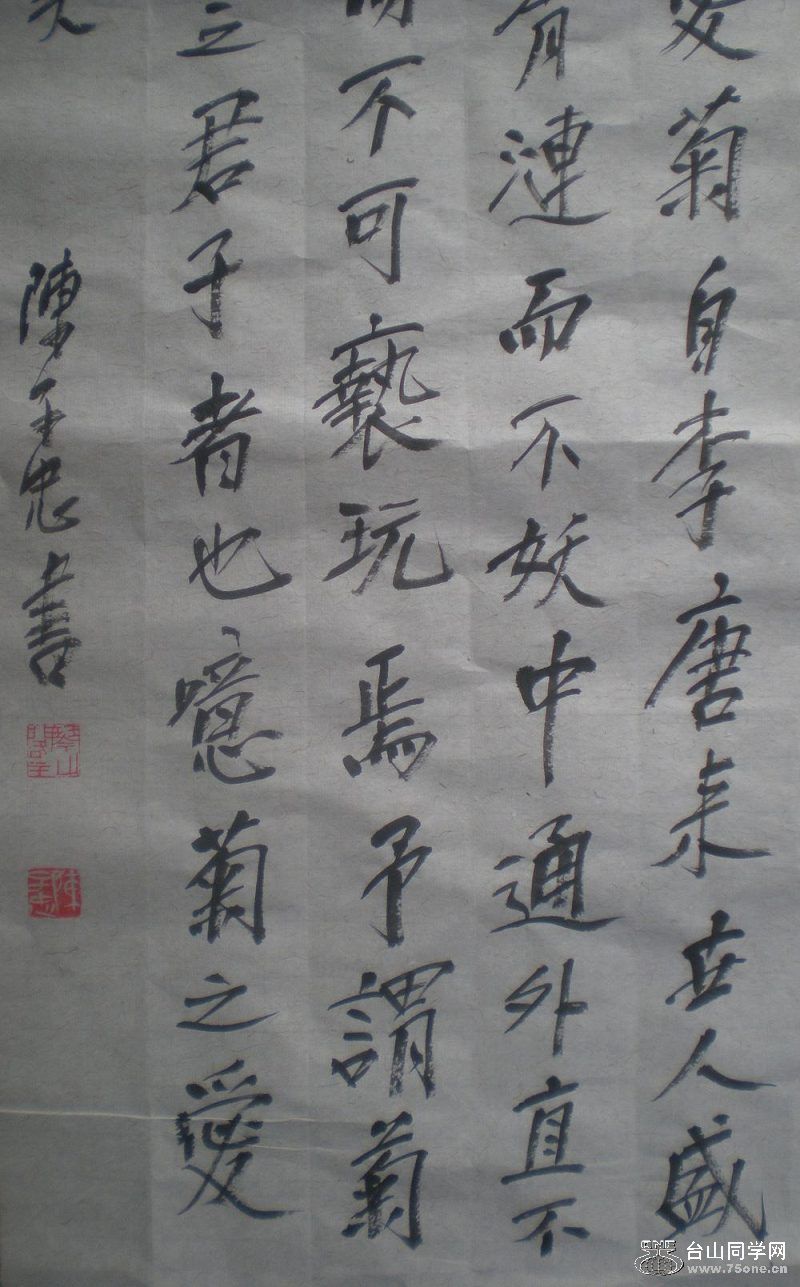 愛菊自李唐来世人盛
清漣而不妖中通外直不
不可褻玩焉予謂菊
之君子者也噫菊之愛
陳玉忠書
台山同学网
www.75one.cn